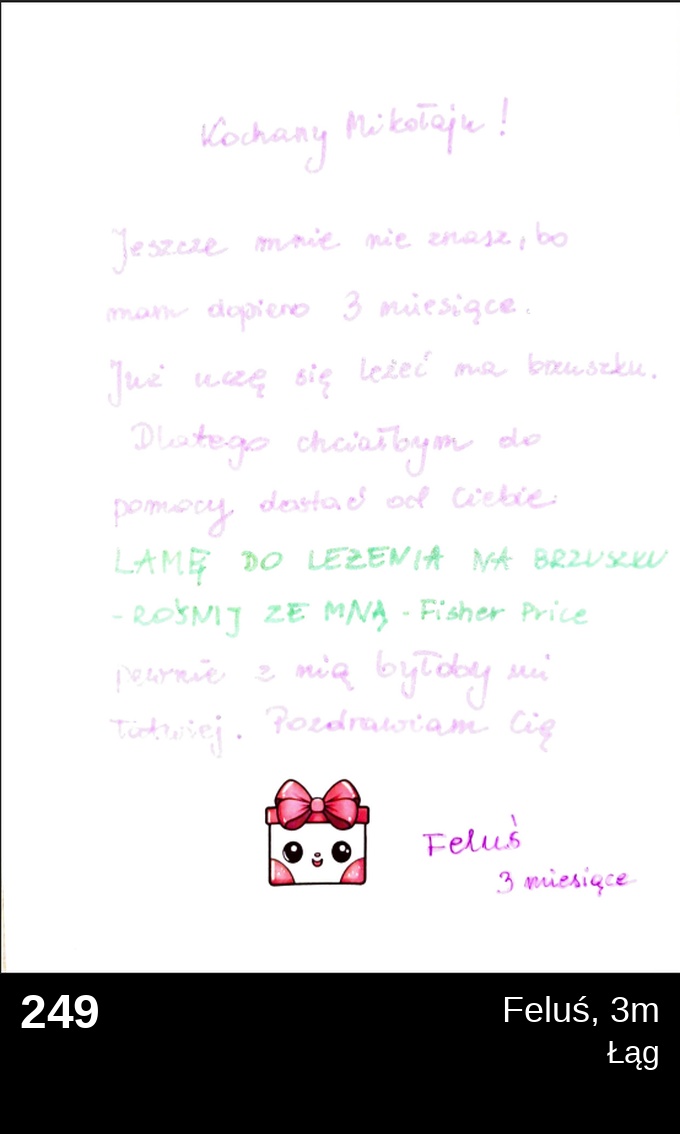 Kochany Mikołaju !
Jeszcze mnie nie znasz, bo
mam dopiero 3 miesiące.
Już uczę się leżeć na brzuszku.
Dlatego chciałbym do
pomocy dostać od Ciebie:
LAMĘ DO LEŻENIA NA BRZUSZKU
- ROŚNIJ ZE MNĄ - Fisher Price
pewnie z nią byłoby mi
łatwiej. Pozdrawiam Cię
Feluś
3 miesiące
249
Feluś, 3m
Łąg